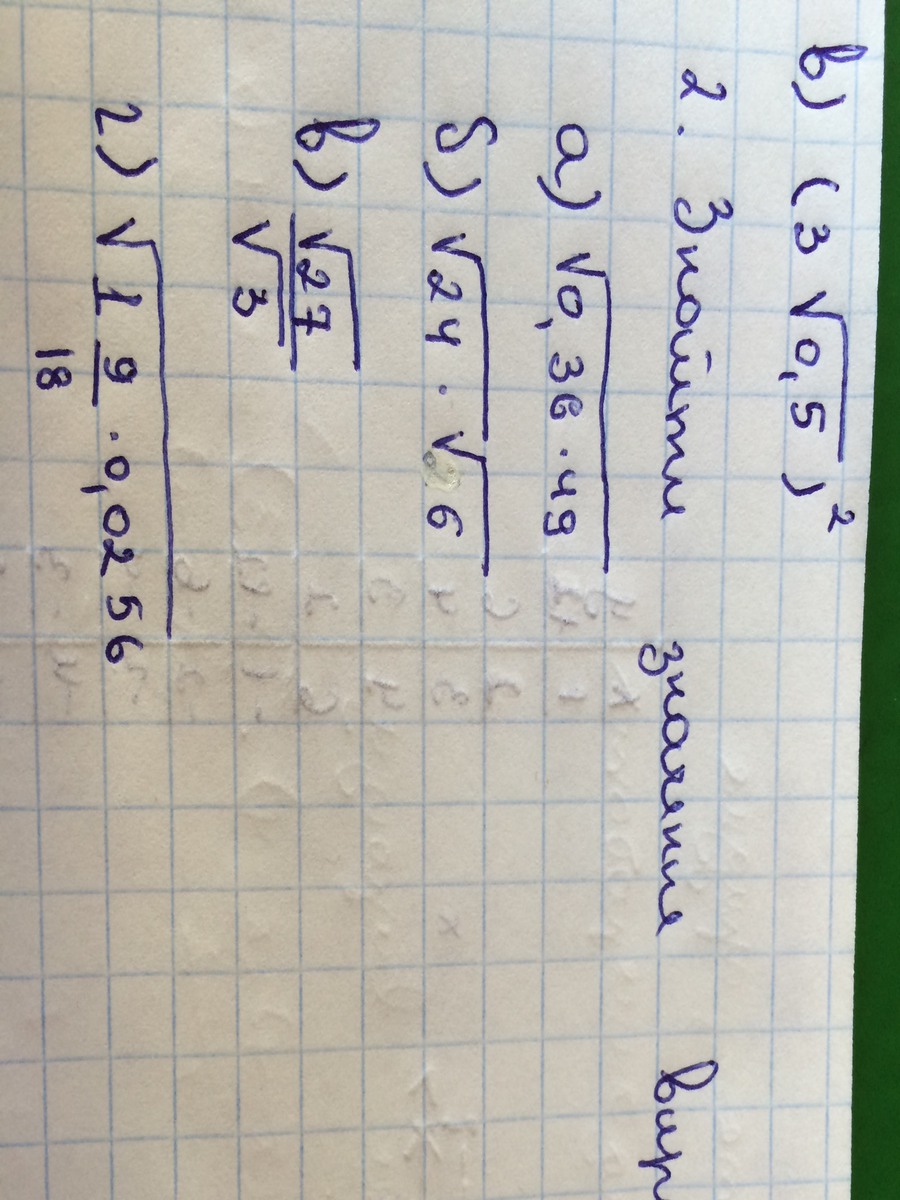 в) (3 √0,5)²
2. Знайти значення вир
а) √0,36 · 49
б) √24 · √6
в) √27 / √3
г) √1 9/18 · 0,0256